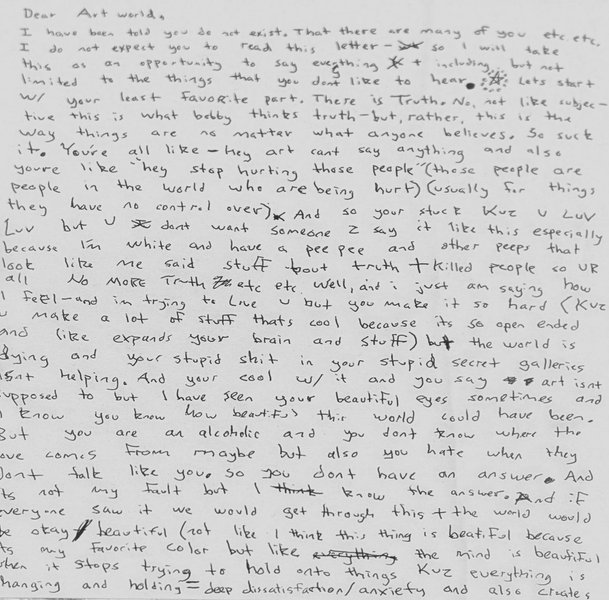 Dear Art world,
I have been told you do not exist. That there are many of you etc. etc.
I do not expect you to read this letter - so I will take
this as an opportunity to say everything + including but not
limited to the things that you don't like to hear. Lets start
w/ your least favorite part. There is Truth. No, not like subjec-
tive this is what bobby thinks truth - but, rather, this is the
way things are no matter what anyone believes. So suck
it. You're all like - hey art cant say anything and also
youre like "hey stop hurting those people" (those people are
people in the world who are being hurt) (usually for things
they have no control over). And so your stuck Kuz U LUV
Luv but U dont want someone 2 say it like this especially
because I'm white and have a pee pee and other peeps that
look like me said stuff bout truth + killed people so UR
all No MORE Truth etc etc. Well, and i just am saying how
I feel - and im trying to Love U but you make it so hard (Kuz
u make a lot of stuff thats cool because its so open ended
and like expands your brain and stuff) but the world is
dying and your stupid shit in your stupid secret galleries
isnt helping. And your cool w/ it and you say art isnt
supposed to but I have seen your beautiful eyes sometimes and
I know you know how beautiful this world could have been.
But you are an alcoholic and you dont know where the
love comes from maybe but also you hate when they
dont talk like you. so you dont have an answer. And
its not my fault but I think know the answer. And if
everyone saw it we would get through this + the world would
be okay / beautiful (not like I think this thing is beatiful because
its my favorite color but like everything the mind is beautiful
when it stops trying to hold onto things Kuz everything is
changing and holding = deep dissatisfaction/anxiety and also creates